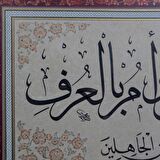 وأمر بالعرف
الجاهلين